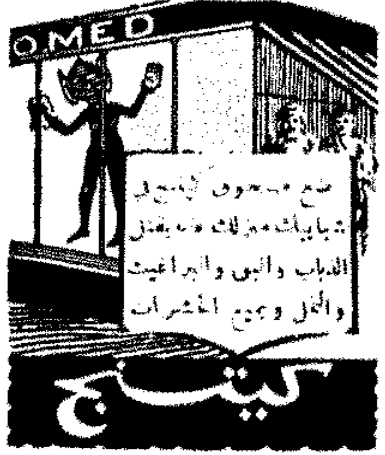 O.MED
ضع مسحوق كيتنج في
شبابيك منزلك فانه يقتل
الذباب والبق والبراغيث
والنمل وجميع الحشرات
كيتنج